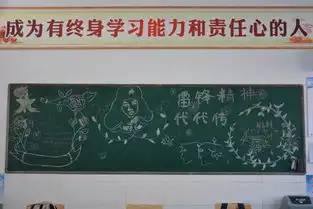 成为有终身学习能力和责任心的人
雷锋精神
代代传